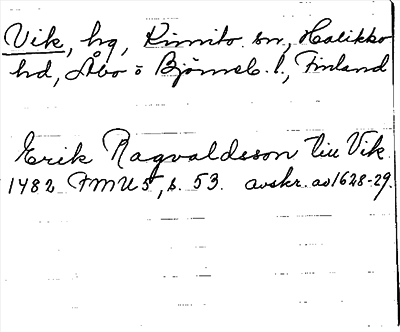 Vik, hg, Kimito sn, Halikko
hd, Åbo o Björneb. l., Finland
Erik Ragvaldsson till Vik
1482 FMU 5, s. 53. avskr. av 1628-29.